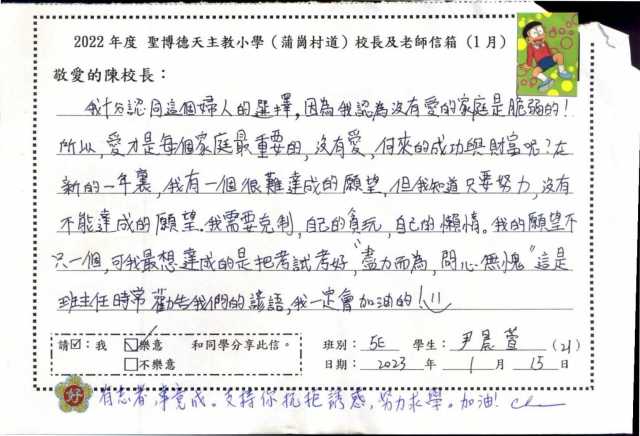 2022 年度 聖博德天主教小學（蒲崗村道）校長及老師信箱（1月）
敬愛的陳校長：
我十分認同這個婦人的選擇，因為我認為沒有愛的家庭是脆弱的！
所以，愛才是每個家庭最重要的，沒有愛，何來的成功與財富呢？在
新的一年裏，我有一個很難達成的願望，但我知道只要努力，沒有
不能達成的願望。我需要克制，自己的貪玩，自己的懶惰。我的願望不
只一個，可我最想達成的是把考試考好，"盡力而為，問心無愧"這是
班主任時常勸告我們的諺語，我一定會加油的！
請☑：我 ☑樂意 和同學分享此信。 班別：5E 學生：尹晨萱 (21)
□不樂意 日期：2023 年 1 月 15 日
好 有志者，事竟成。支持你抗拒誘惑，努力求學。加油！